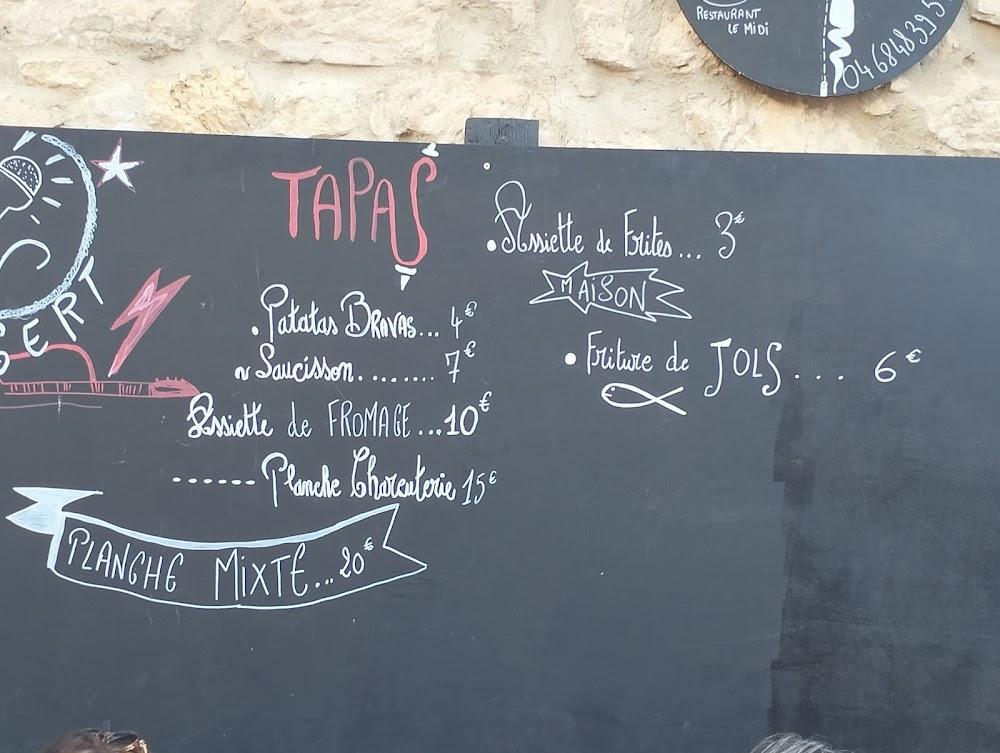 RESTAURANT
LE MiDi
04 68 48 39 5
CERT
TAPAS
. Patatas BRAVAS... 4€
~ Saucisson........ 7€
Assiette de FROMAGE ...10€
------ Planche Charcuterie 15€
PLANCHE MiXTE... 20€
• Assiette de Frites... 3€
MAiSON
• Friture de JOLS.... 6€